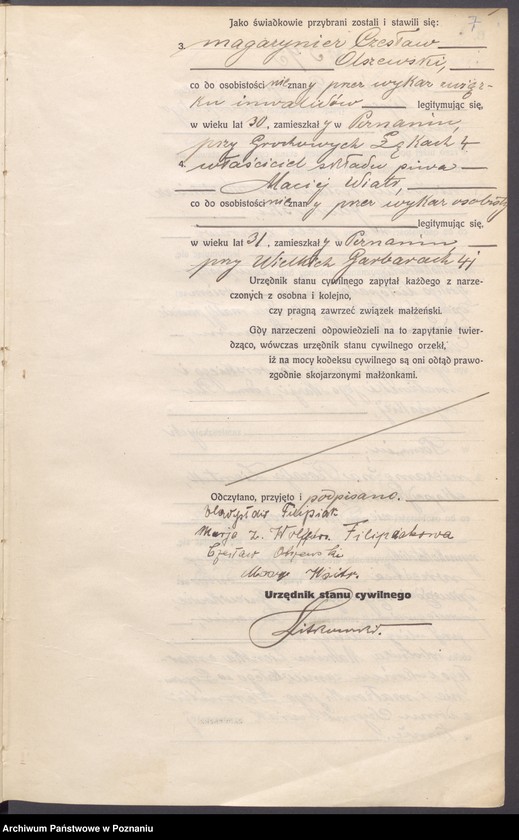 7
Jako świadkowie przybrani zostali i stawili się:
3. magazynier Czesław
Olszewski,
co do osobistości nieznany przez wykaz związ-
ku inwalidów legitymując się,
w wieku lat 30, zamieszkały w Poznaniu,
przy Grochowych Łąkach 4
4. właściciel składu piwa
Maciej
co do osobistości nieznany przez wykaz osobisty
legitymując się,
w wieku lat 31, zamieszkały w Poznaniu,
przy Wielkich Garbarach 41
Urzędnik stanu cywilnego zapytał każdego z narze-
czonych z osobna i kolejno,
czy pragną zawrzeć związek małżeński.
Gdy narzeczeni odpowiedzieli na to zapytanie twier-
dząco, wówczas urzędnik stanu cywilnego orzekł,
iż na mocy kodeksu cywilnego są oni odtąd prawo-
zgodnie skojarzonymi małżonkami.
Odczytano, przyjęto i podpisano.
Władysław Filipiak
Marja z. Filipiakowa
Czesław Olszewski
Urzędnik stanu cywilnego
Archiwum Państwowe w Poznaniu